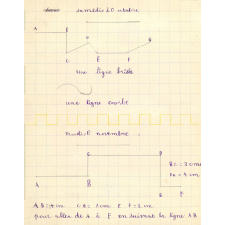 samedi 20 octobre
A B
D G
C E F
une ligne brisée
une ligne courbe
mardi 6 novembre
C D
BC = 3 cm
DE = 4 cm
A B E F
pour aller de A à F en suivant la ligne AB